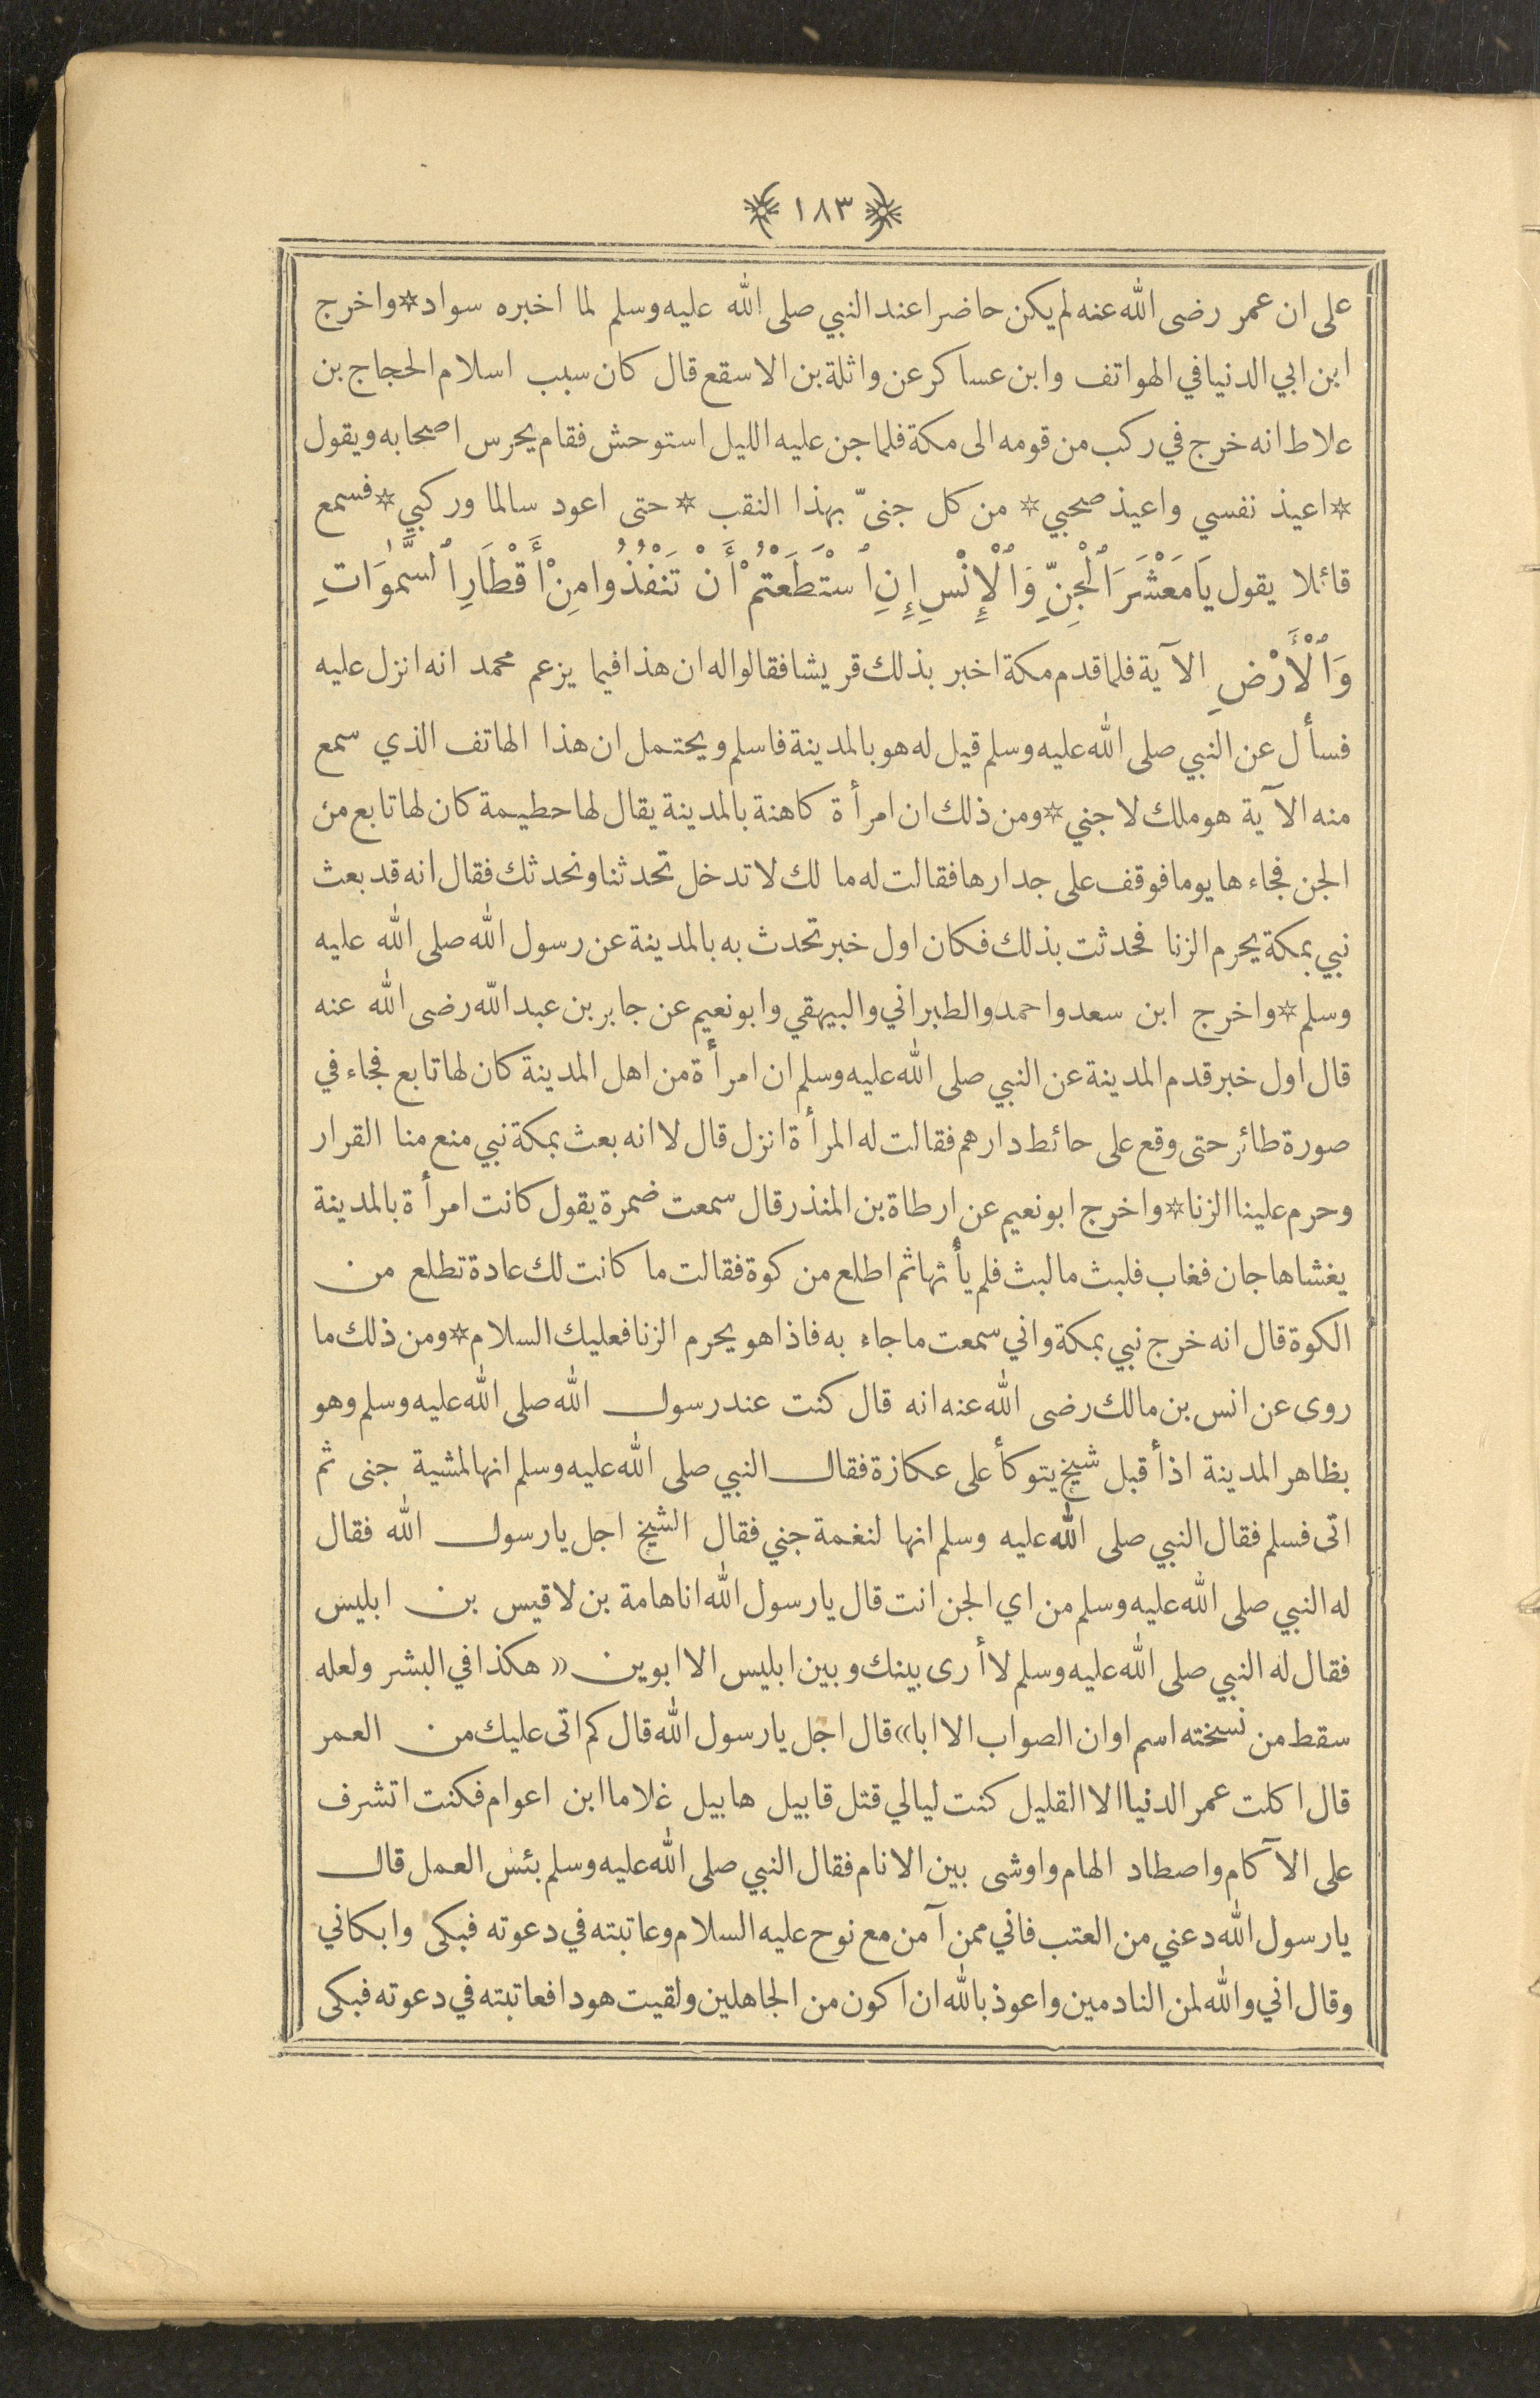 ١٨٣
على ان عمر رضى الله عنه لم يكن حاضرا عند النبي صلى الله عليه وسلم لما اخبره سواد * واخرج
ابن ابي الدنيا في الهواتف وابن عساكر عن واثلة بن الاسقع قال كان سبب اسلام الحجاج بن
علاط انه خرج في ركب من قومه الى مكة فلما جن عليه الليل استوحش فقام يحرس اصحابه ويقول
* اعيذ نفسي واعيذ صحبي * من كل جنىّ بهذا النقب * حتى اعود سالما وركبي * فسمع
قائلا يقول يَامَعْشَرَ ٱلْجِنِّ وَٱلْإِنْسِ إِنِ ٱسْتَطَعْتُمْ أَنْ تَنْفُذُوا مِنْ أَقْطَارِ ٱلسَّمٰوَاتِ
وَٱلْأَرْضِ الآية فلما قدم مكة اخبر بذلك قريشا فقالوا له ان هذا فيما يزعم محمد انه انزل عليه
فسأل عن النبي صلى الله عليه وسلم قيل له هو بالمدينة فاسلم ويحتمل ان هذا الهاتف الذي سمع
منه الآية هو ملك لا جني * ومن ذلك ان امرأة كاهنة بالمدينة يقال لها حطيمة كان لها تابع من
الجن فجاءها يوما فوقف على جدارها فقالت له ما لك لا تدخل تحدثنا ونحدثك فقال انه قد بعث
نبي بمكة يحرم الزنا فحدثت بذلك فكان اول خبر تحدث به بالمدينة عن رسول الله صلى الله عليه
وسلم * واخرج ابن سعد واحمد والطبراني والبيهقي وابو نعيم عن جابر بن عبد الله رضى الله عنه
قال اول خبر قدم المدينة عن النبي صلى الله عليه وسلم ان امرأة من اهل المدينة كان لها تابع فجاء في
صورة طائر حتى وقع على حائط دارهم فقالت له المرأة انزل قال لا انه بعث بمكة نبي منع منا القرار
وحرم علينا الزنا * واخرج ابو نعيم عن ارطاة بن المنذر قال سمعت ضمرة يقول كانت امرأة بالمدينة
يغشاها جان فغاب فلبث ما لبث فلم يأتها ثم اطلع من كوة فقالت ما كانت لك عادة تطلع من
الكوة قال انه خرج نبي بمكة واني سمعت ما جاء به فاذا هو يحرم الزنا فعليك السلام * ومن ذلك ما
روى عن انس بن مالك رضى الله عنه انه قال كنت عند رسول الله صلى الله عليه وسلم وهو
بظاهر المدينة اذ أقبل شيخ يتوكأ على عكازة فقال النبي صلى الله عليه وسلم انها لمشية جنى ثم
اتى فسلم فقال النبي صلى الله عليه وسلم انها لنغمة جني فقال الشيخ اجل يا رسول الله فقال
له النبي صلى الله عليه وسلم من اي الجن انت قال يا رسول الله انا هامة بن لاقيس بن ابليس
فقال له النبي صلى الله عليه وسلم لا أرى بينك وبين ابليس الا ابوين «هكذا في البشر ولعله
سقط من نسخته اسم او ان الصواب الا ابا» قال اجل يا رسول الله قال كم اتى عليك من العمر
قال اكلت عمر الدنيا الا القليل كنت ليالي قتل قابيل هابيل غلاما ابن اعوام فكنت اتشرف
على الآكام واصطاد الهام واوشى بين الانام فقال النبي صلى الله عليه وسلم بئس العمل قال
يا رسول الله دعني من العتب فاني ممن آمن مع نوح عليه السلام وعاتبته في دعوته فبكى وابكاني
وقال اني والله لمن النادمين واعوذ بالله ان اكون من الجاهلين ولقيت هودا فعاتبته في دعوته فبكى